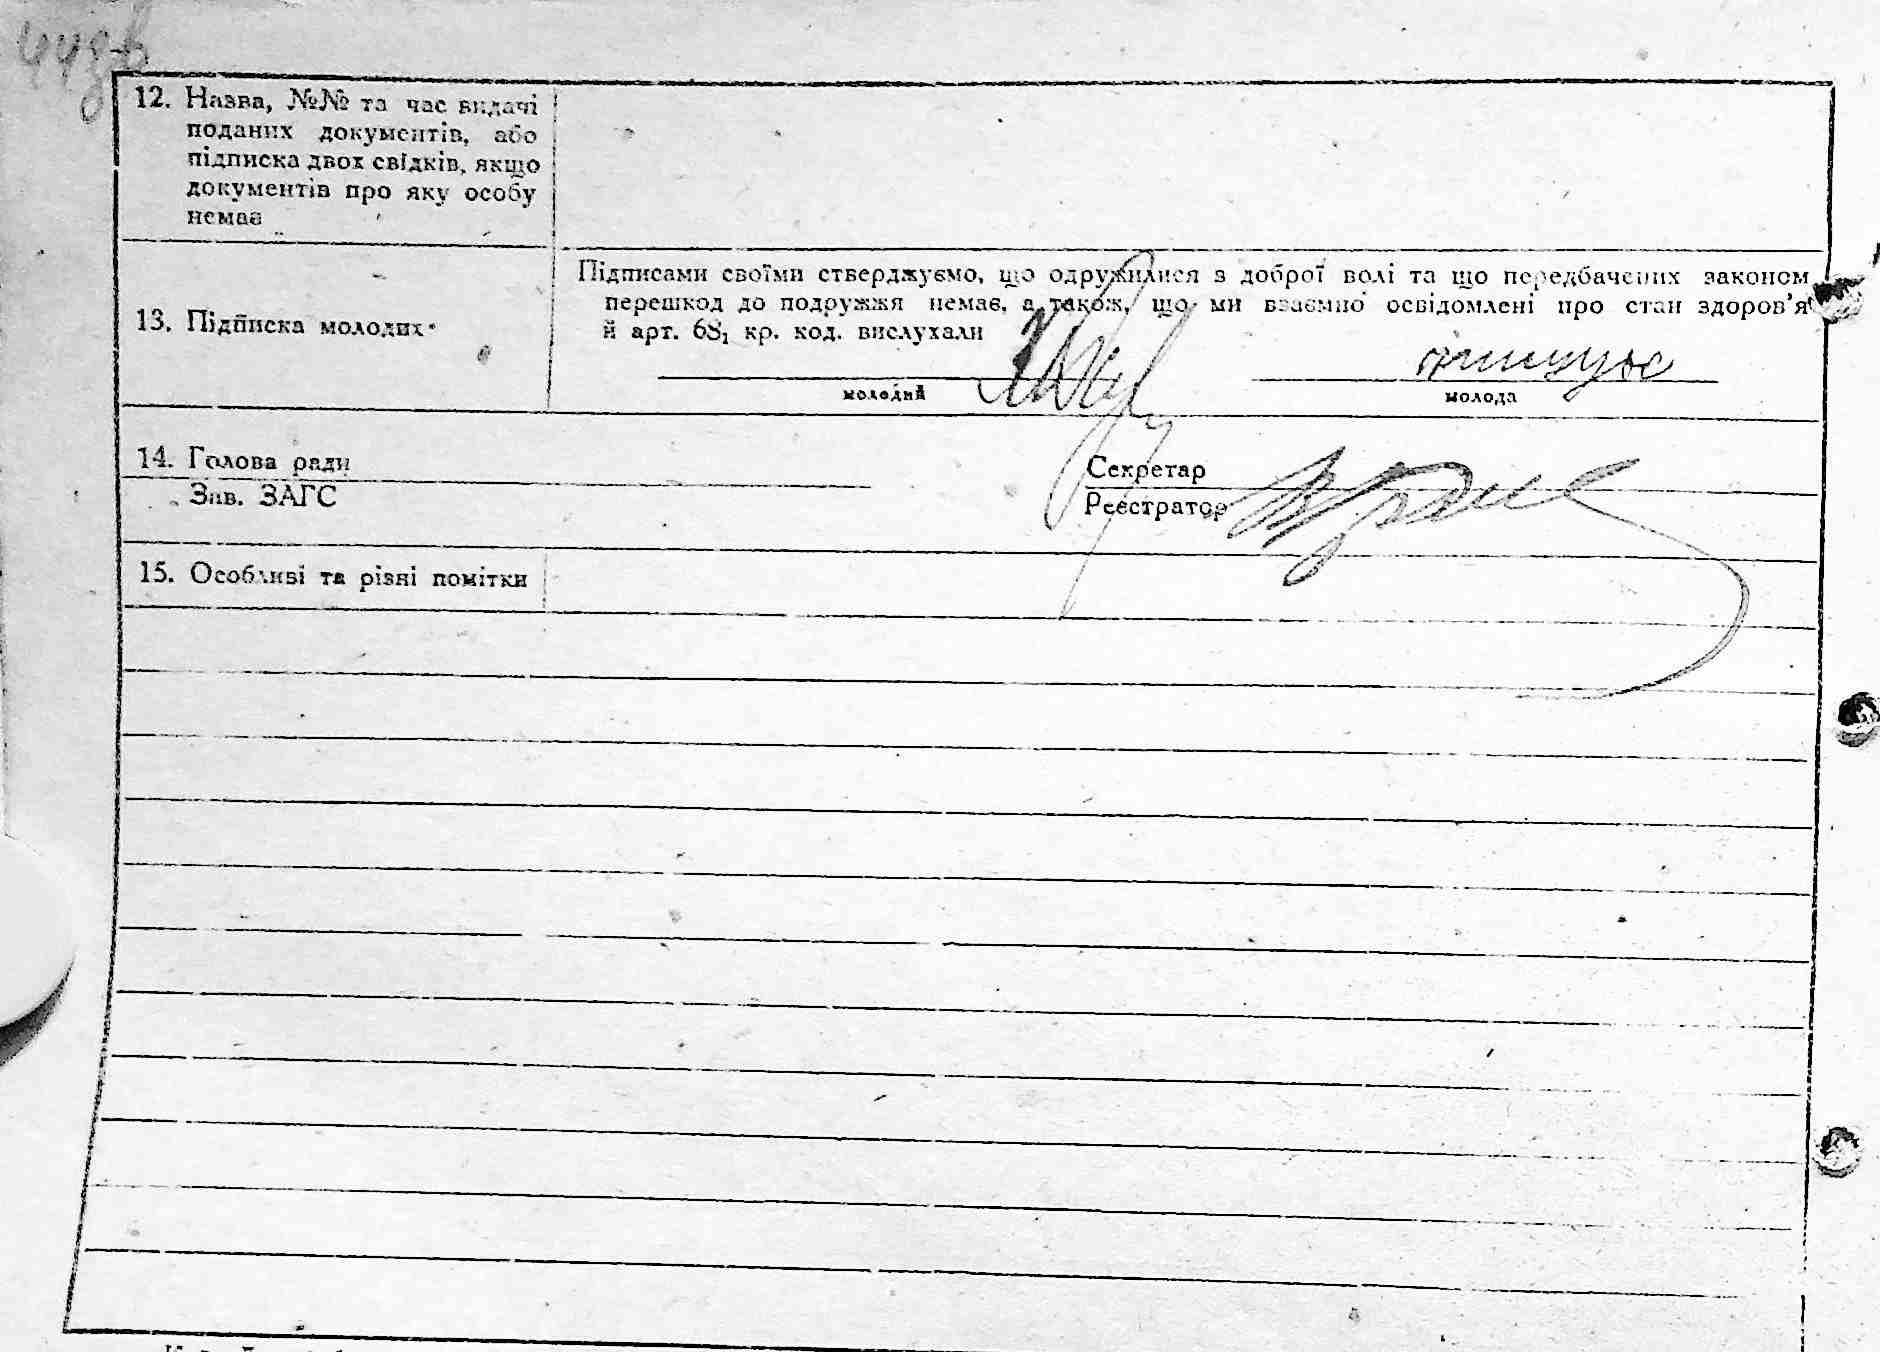 44зв
12. Назва, №№ та час видачі
поданих документів, або
підписка двох свідків, якщо
документів про яку особу
немає
13. Підписка молодих
Підписами своїми стверджуємо, що одружилися з доброї волі та що передбачених законом
перешкод до подружжя немає, а також, що ми взаємно освідомлені про стан здоров'я
й арт. 68₁ кр. код. вислухали
молодий
молода
14. Голова ради
Зав. ЗАГС
Секретар
Реєстратор
15. Особливі та різні помітки